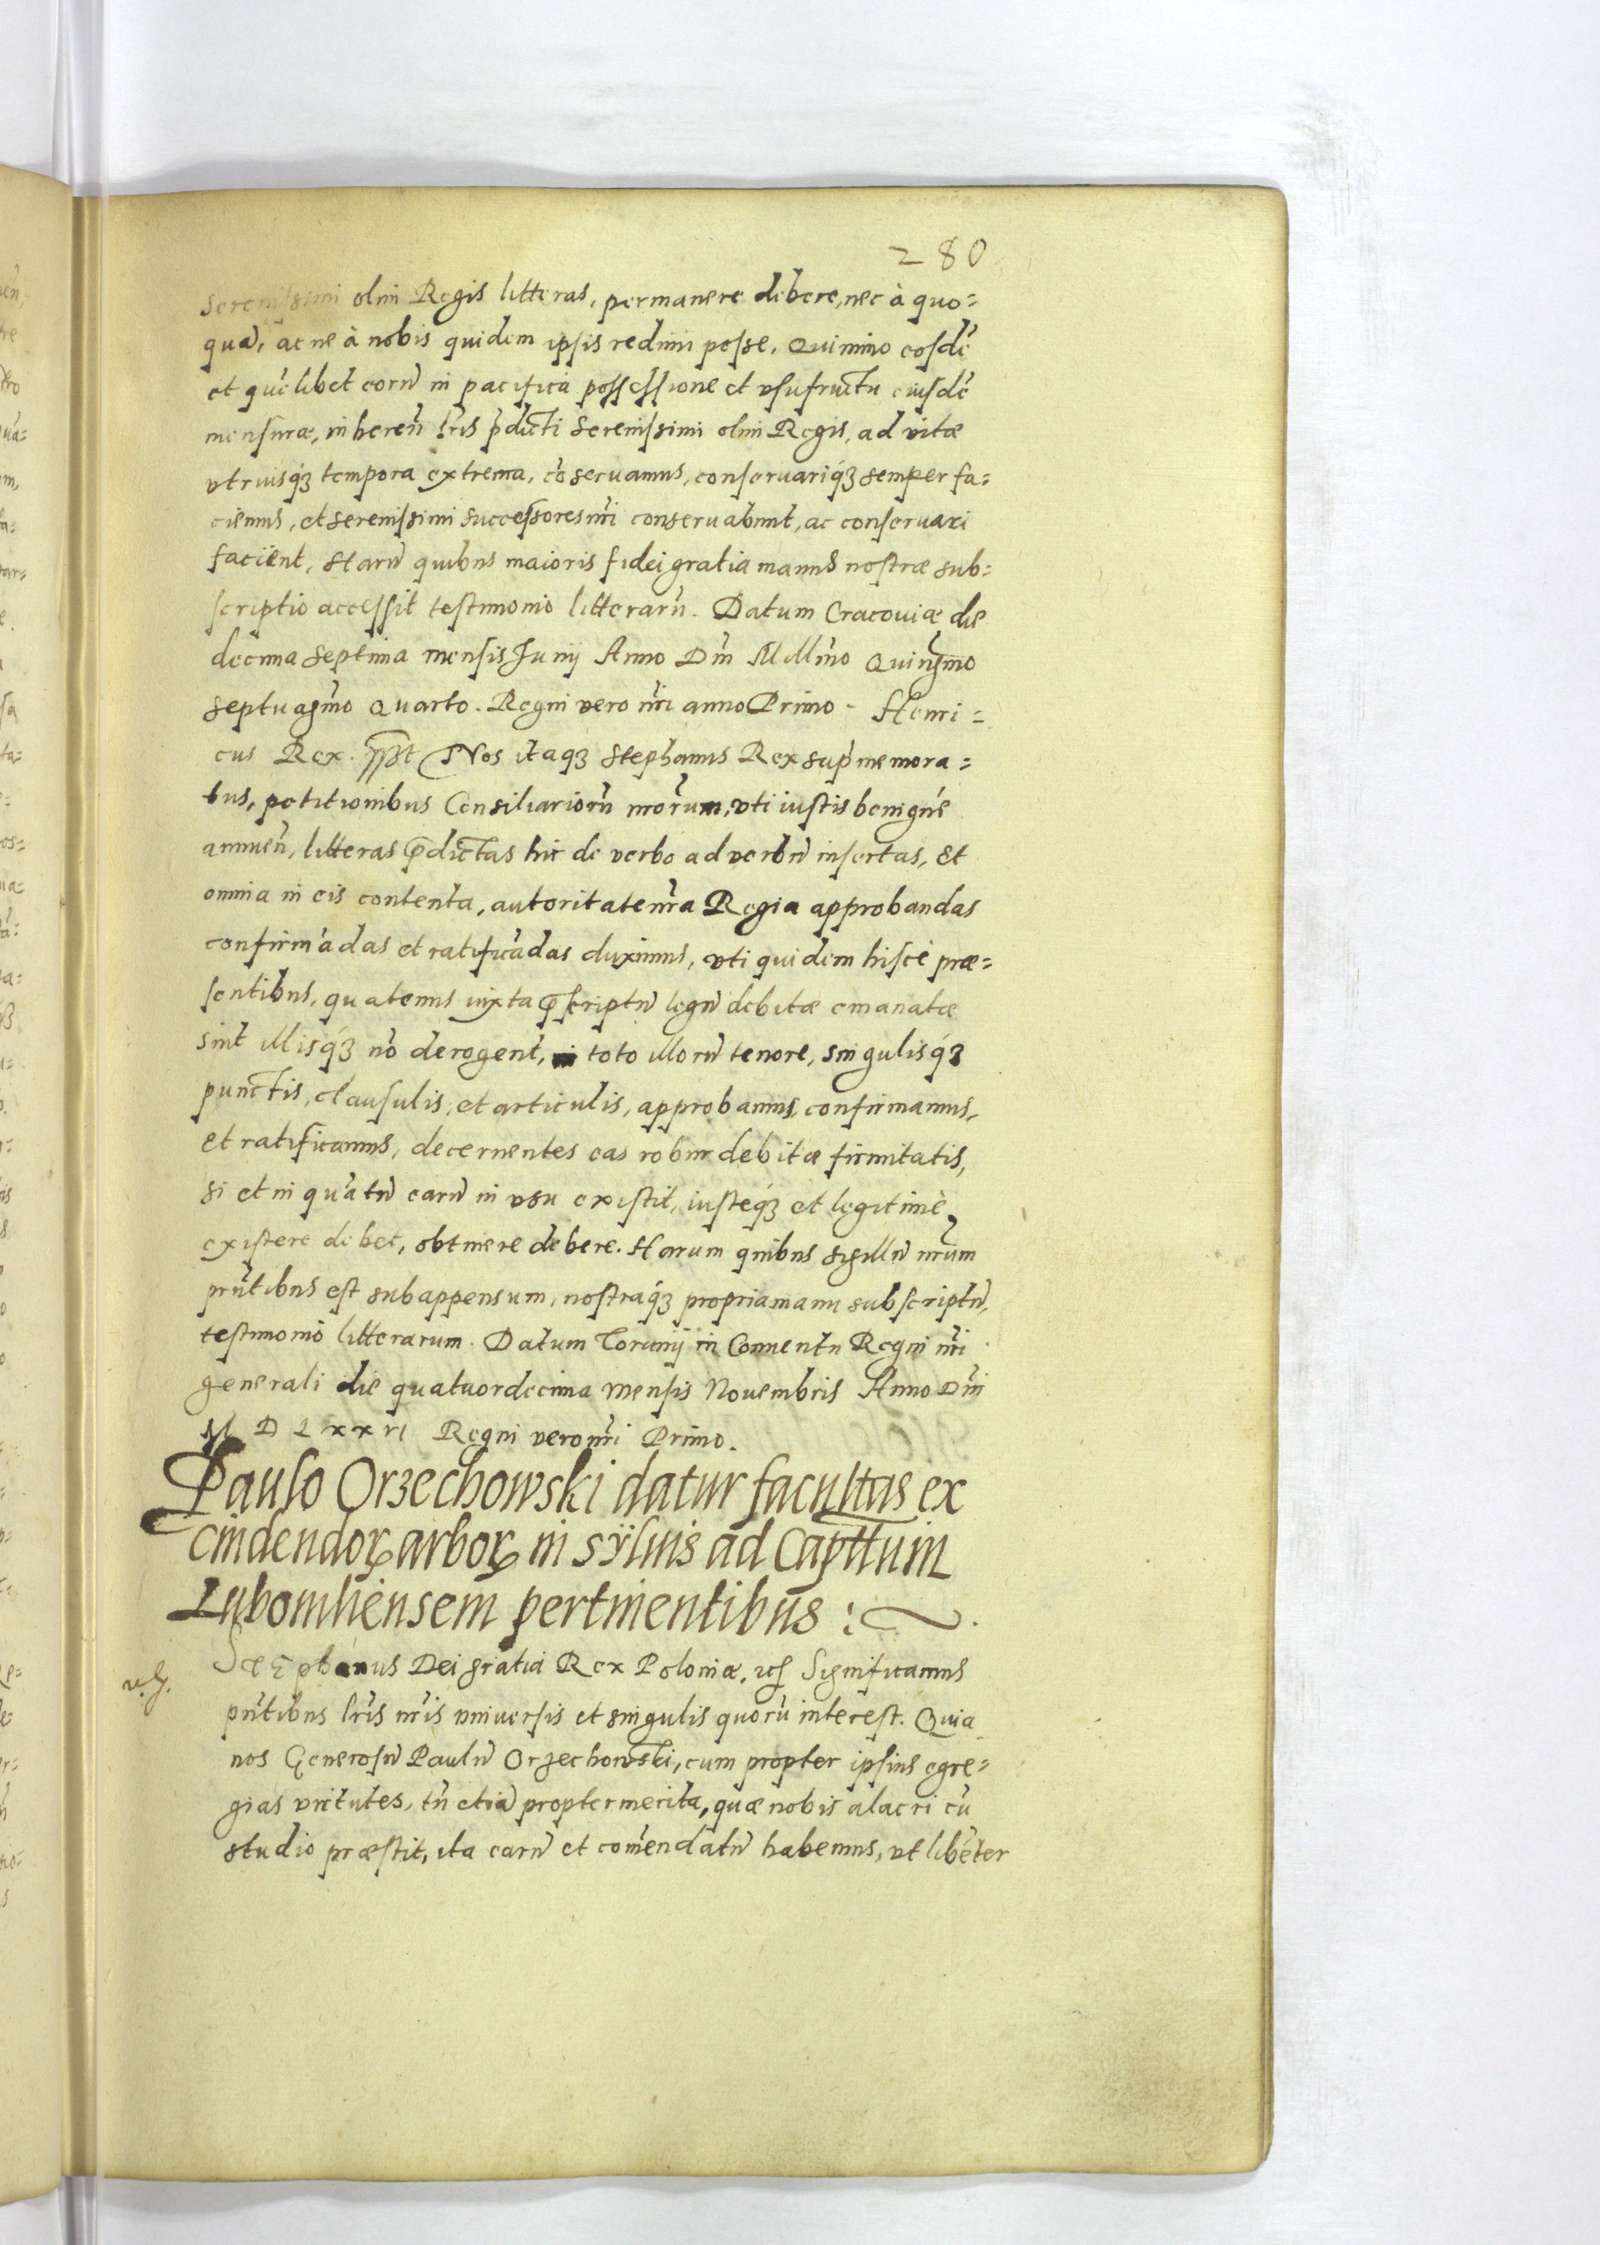 280
Serenissimi olim Regis litteras, permanere debere, nec à quo=
quā, ac ne à nobis quidem ipsis redimi posse. Quinimo eosdē
et quēlibet eorū in pacifica possessione et vsufructu eiusdē
mensuræ, inherēn lr̄is p̄dicti Serenissimi olim Regis, ad vitæ
vtriusq́ꝫ tempora extrema, cōseruamus, conseruariq́ꝫ semper fa=
ciemus, et serenissimi successores nr̄i conseruabunt, ac conseruari
facient, Harū quibus maioris fidei gratia manus nostræ sub=
scriptio accessit testimonio litterarū. Datum Cracouiæ die
decima septima mensis Junij Anno Dn̄i Millm̄o Quingm̄o
septuagm̄o Quarto. Regni vero nr̄i anno Primo - Henri=
cus Rex. Nos itaqꝫ Stephanus Rex sup̄memora=
tus, petitionibus Consiliariorū nr̄orum, vti iustis benignè
annuēn, litteras p̄dictas hic de verbo ad verbū insertas, et
omnia in eis contenta, autoritate nr̄a Regia approbandas
confirmādas et ratificādas duximus, vti quidem hisce præ=
sentibus, quatenus iuxta p̄scriptū legū debitæ emanatæ
sint illisq́ꝫ nō derogent, in toto illorū tenore, singulisq́ꝫ
punctis, clausulis, et articulis, approbamus, confirmamus,
et ratificamus, decernentes eas robur debitæ firmitatis,
si et in quātū earū in vsu existit, iusteq́ꝫ et legitimè
existere debet, obtinere debere. Harum quibus sigillū nr̄um
pr̄n̄tibus est subappensum, nostraq́ꝫ propria manu subscriptū,
testimonio litterarum. Datum Torunij in Conuentu Regni nr̄i
generali die quatuordecima mensis Nouembris Anno Dn̄i
M D L xx vi Regni vero nr̄i Primo.
Paulo Orzechowski datur facultas ex
cindendoꝝ arboꝝ in sÿluis ad Capttum
Lubomliensem pertinentibus :
Stephanus Dei gratia Rex Poloniæ, etc̄ Significamus
pn̄tibus lr̄is nr̄is vniuersis et singulis quorū interest. Quia
nos Generosū Paulū Orzechowski, cum propter ipsius egre=
gias virtutes, tū etiā propter merita, quæ nobis alacri cū
studio præstit, ita carū et com̄endatū habemus, vt libenter